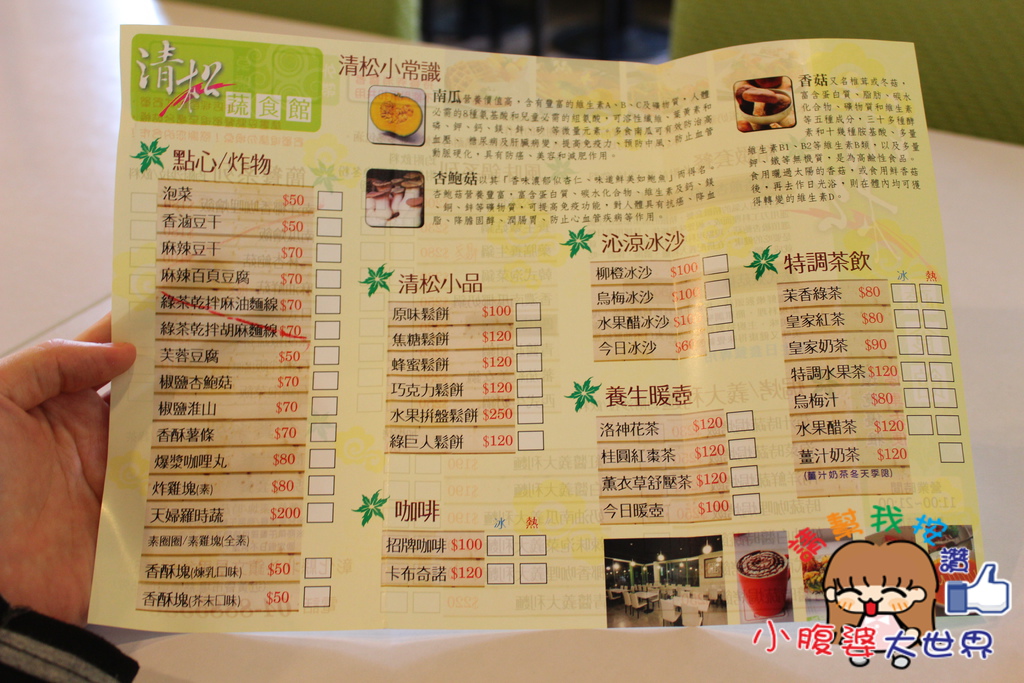 清松
蔬食館
清松小常識
南瓜營養價值高，含有豐富的維生素A、B、C及礦物質，人體
必需的8種氨基酸和兒童必需的組氨酸，可溶性纖維、葉黃素和
磷、鉀、鈣、鎂、鋅、矽等微量元素。多食南瓜可有效防治高
血壓、糖尿病及肝臟病變，提高免疫力、預防中風，防止血管
動脈硬化，具有防癌、美容和減肥作用。
杏鮑菇以其「香味濃郁似杏仁、味道鮮美如鮑魚」而得名，
杏鮑菇營養豐富，富含蛋白質、碳水化合物、維生素及鈣、鎂、
銅、鋅等礦物質，可提高免疫功能，對人體具有抗癌、降血
脂、降膽固醇、潤腸胃、防止心血管疾病等作用。
香菇又名椎茸或冬菇，
富含蛋白質、脂肪、碳水
化合物、礦物質和維生素
等五種成分，三十多種酵
素和十幾種胺基酸、多量
維生素B1、B2等維生素B類，以及多量
鉀、鐵等無機質，是為高鹼性食品。
食用曬過太陽的香菇，或食用鮮香菇
後，再去作日光浴，則在體內均可獲
得轉變的維生素D。
點心/炸物
泡菜 $50
香滷豆干 $50
麻辣豆干 $70
麻辣百頁豆腐 $70
綠茶乾拌麻油麵線 $70
綠茶乾拌胡麻麵線 $70
芙蓉豆腐 $50
椒鹽杏鮑菇 $70
椒鹽淮山 $70
香酥薯條 $70
爆漿咖哩丸 $80
炸雞塊(素) $80
天婦羅時蔬 $200
素圈圈/素雞塊(全素)
香酥塊(煉乳口味) $50
香酥塊(芥末口味) $50
清松小品
原味鬆餅 $100
焦糖鬆餅 $120
蜂蜜鬆餅 $120
巧克力鬆餅 $120
水果拼盤鬆餅 $250
綠巨人鬆餅 $120
咖啡
冰 熱
招牌咖啡 $100
卡布奇諾 $120
沁涼冰沙
柳橙冰沙 $100
烏梅冰沙 $100
水果醋冰沙
今日冰沙
養生暖壺
洛神花茶 $120
桂圓紅棗茶 $120
薰衣草舒壓茶 $120
今日暖壺 $100
特調茶飲
冰 熱
茉香綠茶 $80
皇家紅茶 $80
皇家奶茶 $90
特調水果茶 $120
烏梅汁 $80
水果醋茶 $120
薑汁奶茶 $120
(薑汁奶茶冬天季限)
請幫我按
讚
小腹婆大世界